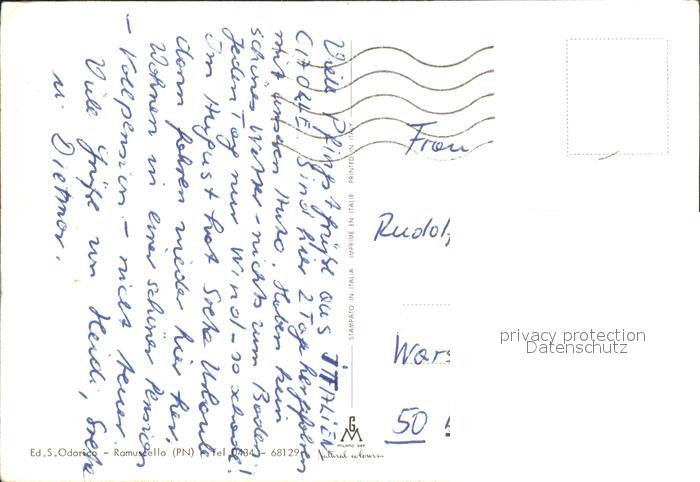 Viele Pfingstgrüße aus ITALIEN
CAORLE. Sind hier 2 Tage hergefahren
mit unseren Auto. Haben kein
schönes Wetter - nichts zum Baden.
Jeden Tag nur Wind - so schade!
Im August hat Urlaub
dann fahren wieder hier her.
Wohnen in einer schöner Pension
- Vollpension. - nicht teuer.
Viele Grüße von Heidi,
u. Dietmar.
Frau
Rudolf
Wars
50
privacy protection
Datenschutz
STAMPATO IN ITALIA IMPRIMÉ EN ITALIE PRINTED IN
GM
milano
Natural colours
Ed. S. Odorico - Ramuscello (PN) - Tel. 0434 - 68129